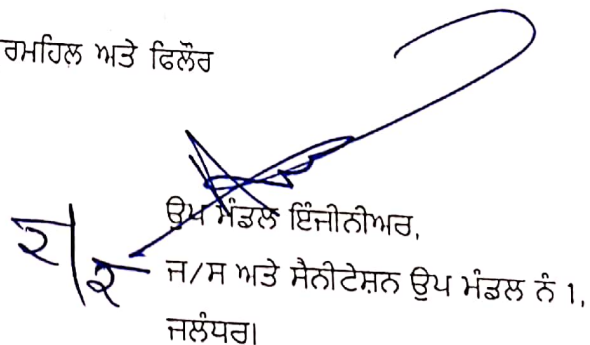 ਰਮਹਿਲ ਅਤੇ ਫਿਲੌਰ
ਉਪ ਮੰਡਲ ਇੰਜੀਨੀਅਰ,
ਜ/ਸ ਅਤੇ ਸੈਨੀਟੇਸ਼ਨ ਉਪ ਮੰਡਲ ਨੰ 1,
ਜਲੰਧਰ।